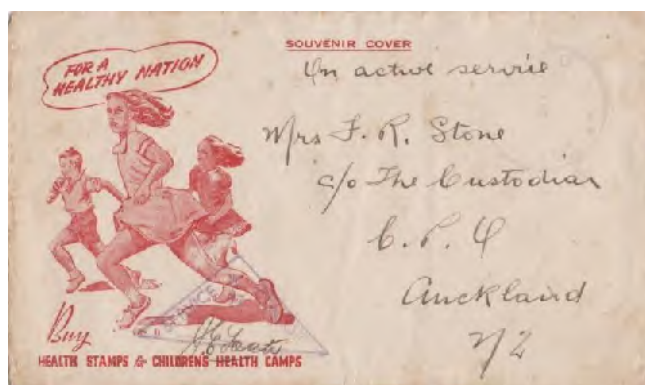 FOR A
HEALTHY NATION
SOUVENIR COVER
On active service
Mrs F. R. Stone
c/o The Custodian
C. P. O
Auckland
NZ
Buy
HEALTH STAMPS & CHILDRENS HEALTH CAMPS